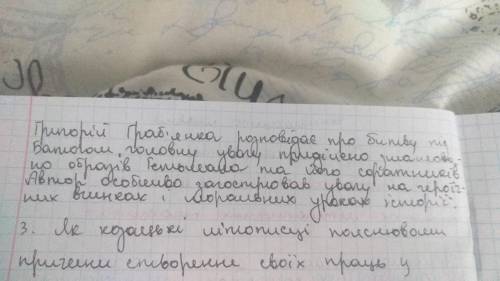 Григорій Граб'янка розповідає про битву під
Батогом, головну увагу приділено змалюван-
ню образів Гетьмана та його соратників
Автор особливо загострював увагу на герої-
них вчинках і моральних уроках історії.
3. Як козацькі літописці пояснювали
причини створення своїх праць у